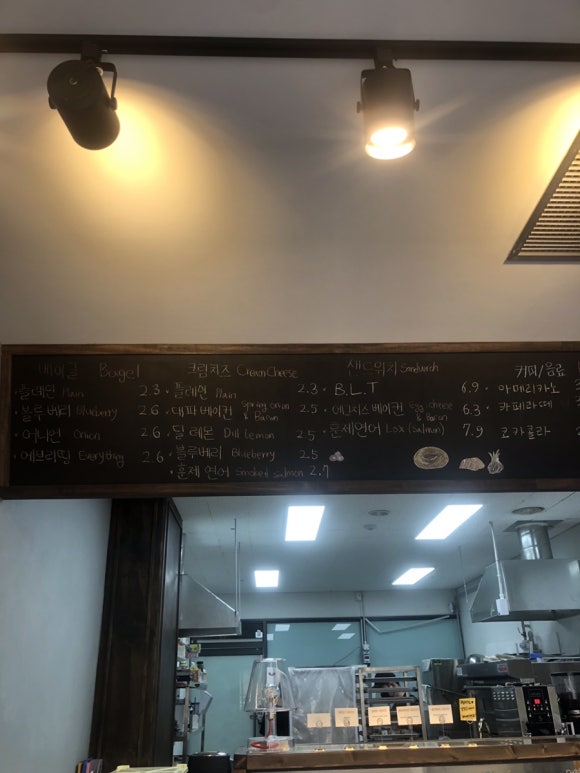 베이글 Bagel
·플레인 Plain 2.3
·블루베리 Blueberry 2.6
·어니언 Onion 2.6
·에브리띵 Everything 2.6
크림치즈 Cream Cheese
·플레인 Plain 2.3
·대파 베이컨 Spring onion & Bacon 2.5
·딜 레몬 Dill Lemon 2.5
·블루베리 Blueberry 2.5
·훈제 연어 Smoked salmon 2.7
샌드위치 Sandwich
·B.L.T 6.9
·에그치즈베이컨 Egg, cheese & Bacon 6.3
·훈제연어 Lox (Salmon) 7.9
커피/음료
·아메리카노
·카페라떼
코카콜라